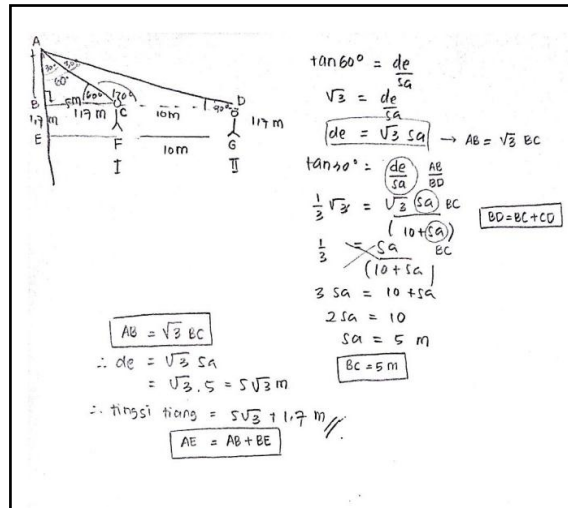 A
30° 30°
60°
B 5m 60° 120° 30° D
1,7 m 1,7 m C 10m 1,7 m
E F 10m G
I II
tan 60° = de/sa
√3 = de/sa
de = √3 sa → AB = √3 BC
tan 30° = de/sa AB/BD
1/3 √3 = √3 sa BC/(10+sa)
BD = BC + CD
1/3 = sa BC/(10+sa)
3 sa = 10 + sa
2 sa = 10
sa = 5 m
BC = 5 m
AB = √3 BC
∴ de = √3 sa
= √3 . 5 = 5√3 m
∴ tinggi tiang = 5√3 + 1,7 m //
AE = AB + BE